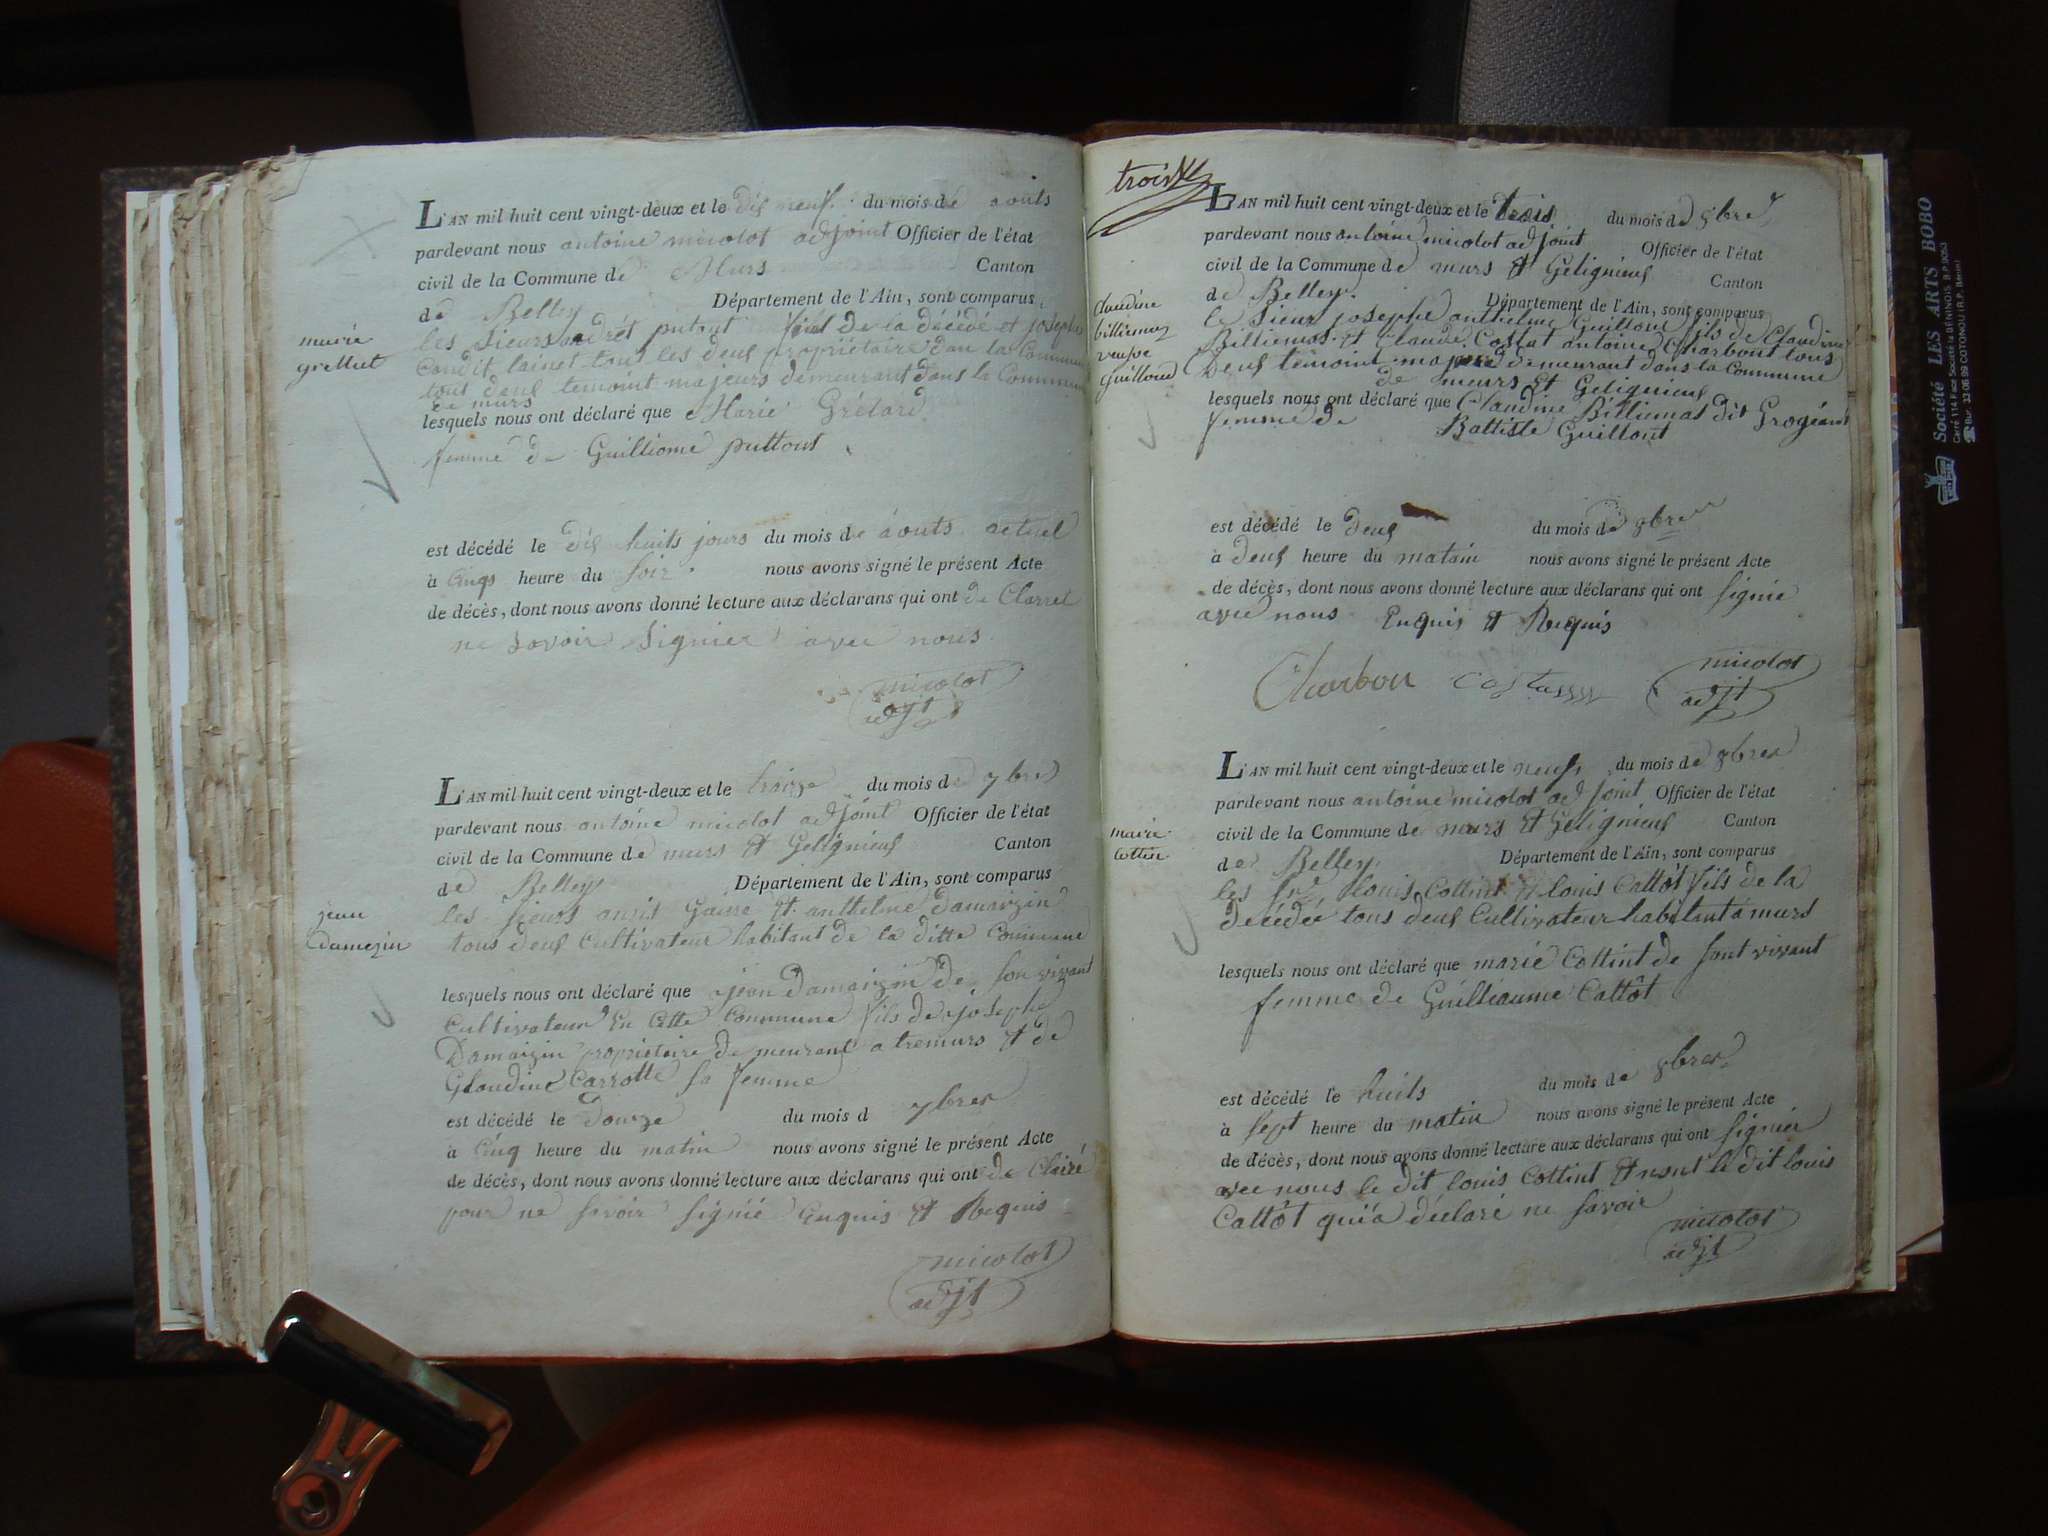 L'AN mil huit cent vingt-deux et le dix neuf du mois de aouts
pardevant nous antoine micolot adjoint Officier de l'état
civil de la Commune de Murs Canton
de Belley Département de l'Ain, sont comparus
les sieurs putput fils de la décédé et josephe
Condit lainet tous les deus propriétaire dan la Commune
tout deus temoint majeurs demeurant dans la Commune
de murs
lesquels nous ont déclaré que Marie Grélard
femme de Guilliome puttout
est décédé le dis huits jours du mois de aouts actuel
à Cinqs heure du soir nous avons signé le présent Acte
de décès, dont nous avons donné lecture aux déclarans qui ont de Clarrel
ne savoir signier avec nous
micolot
adjt
marie
grellut
L'AN mil huit cent vingt-deux et le troizze du mois de 7bre
pardevant nous antoine micolot adjoint Officier de l'état
civil de la Commune de murs Et Gelignieus Canton
de Belley Département de l'Ain, sont comparus
les sieurs Et anthelme Damaizin
tous deus Cultivateur habitant de la ditte Commune
jean
Damezin
lesquels nous ont déclaré que jean Damaizin de son vivant
Cultivateur En Cette Commune fils de josephe
Damaizin propriétaire demeurant a tremurs Et de
Glaudine Carrotte sa femme
est décédé le Douze du mois d 7bres
à Cinq heure du matin nous avons signé le présent Acte
de décès, dont nous avons donné lecture aux déclarans qui ont de Clairé
pour ne savoir signié Enquis Et Requis
micolot
adjt
trois
L'AN mil huit cent vingt-deux et le trois du mois de 8bre
pardevant nous antoine micolot adjoint Officier de l'état
civil de la Commune de murs Et Gelignieus Canton
de Belley Département de l'Ain, sont comparus
le sieur josephe anthelme Guillont fils de Claudine
Billiemas Et Claude Costat antoine Charbont tous
Deus temoint majeure demeurant dans la Commune
de meurs Et Gelignieus
lesquels nous ont déclaré que Claudine Billiemas dit Grogéant
femme de Battiste Guillont
Claudine
billiemaz
veuve
guilloud
est décédé le deus du mois de 8bre
à deus heure du matain nous avons signé le présent Acte
de décès, dont nous avons donné lecture aux déclarans qui ont signié
avec nous Enquis Et Requis
Charbon Costa micolot
adjt
L'AN mil huit cent vingt-deux et le neufs du mois de 8bres
pardevant nous antoine micolot adjoint Officier de l'état
civil de la Commune de murs Et Gelignieus Canton
de Belley Département de l'Ain, sont comparus
les louis Cottint Et louis Cattôt fils de la
décédée tous deus Cultivateur habitant a murs
marie
cottin
lesquels nous ont déclaré que marie Cottint de sont vivant
femme de Guilleaume Cattôt
est décédé le huits du mois de 8bres
à sept heure du matin nous avons signé le présent Acte
de décès, dont nous avons donné lecture aux déclarans qui ont signier
avec nous le dit louis Cottint Et nont le dit louis
Cattôt qui a déclaré ne savoir
micolot
adjt
Société LES ARTS BOBO